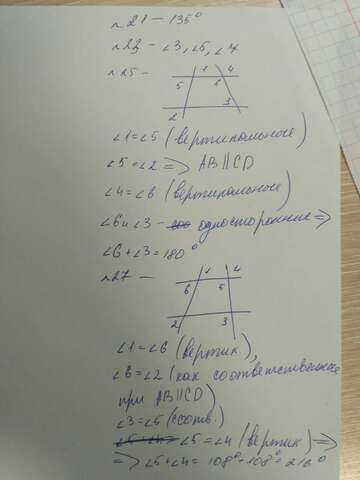 №21 – 135°
№23 – ∠3, ∠5, ∠7
№25 –
1 4
5 6
3
2
∠1 = ∠5 (вертикальные)
∠5 = ∠2 => AB||CD
∠4 = ∠6 (вертикальные)
∠6 и ∠3 – односторонние =>
∠6 + ∠3 = 180°
№27 –
1 4
6 5
2 3
∠1 = ∠6 (вертик.),
∠6 = ∠2 (как соответственное
при AB||CD)
∠3 = ∠5 (соотв.)
∠5+∠4= ∠5 = ∠4 (вертик) =>
=> ∠5 + ∠4 = 108° + 108° = 216°